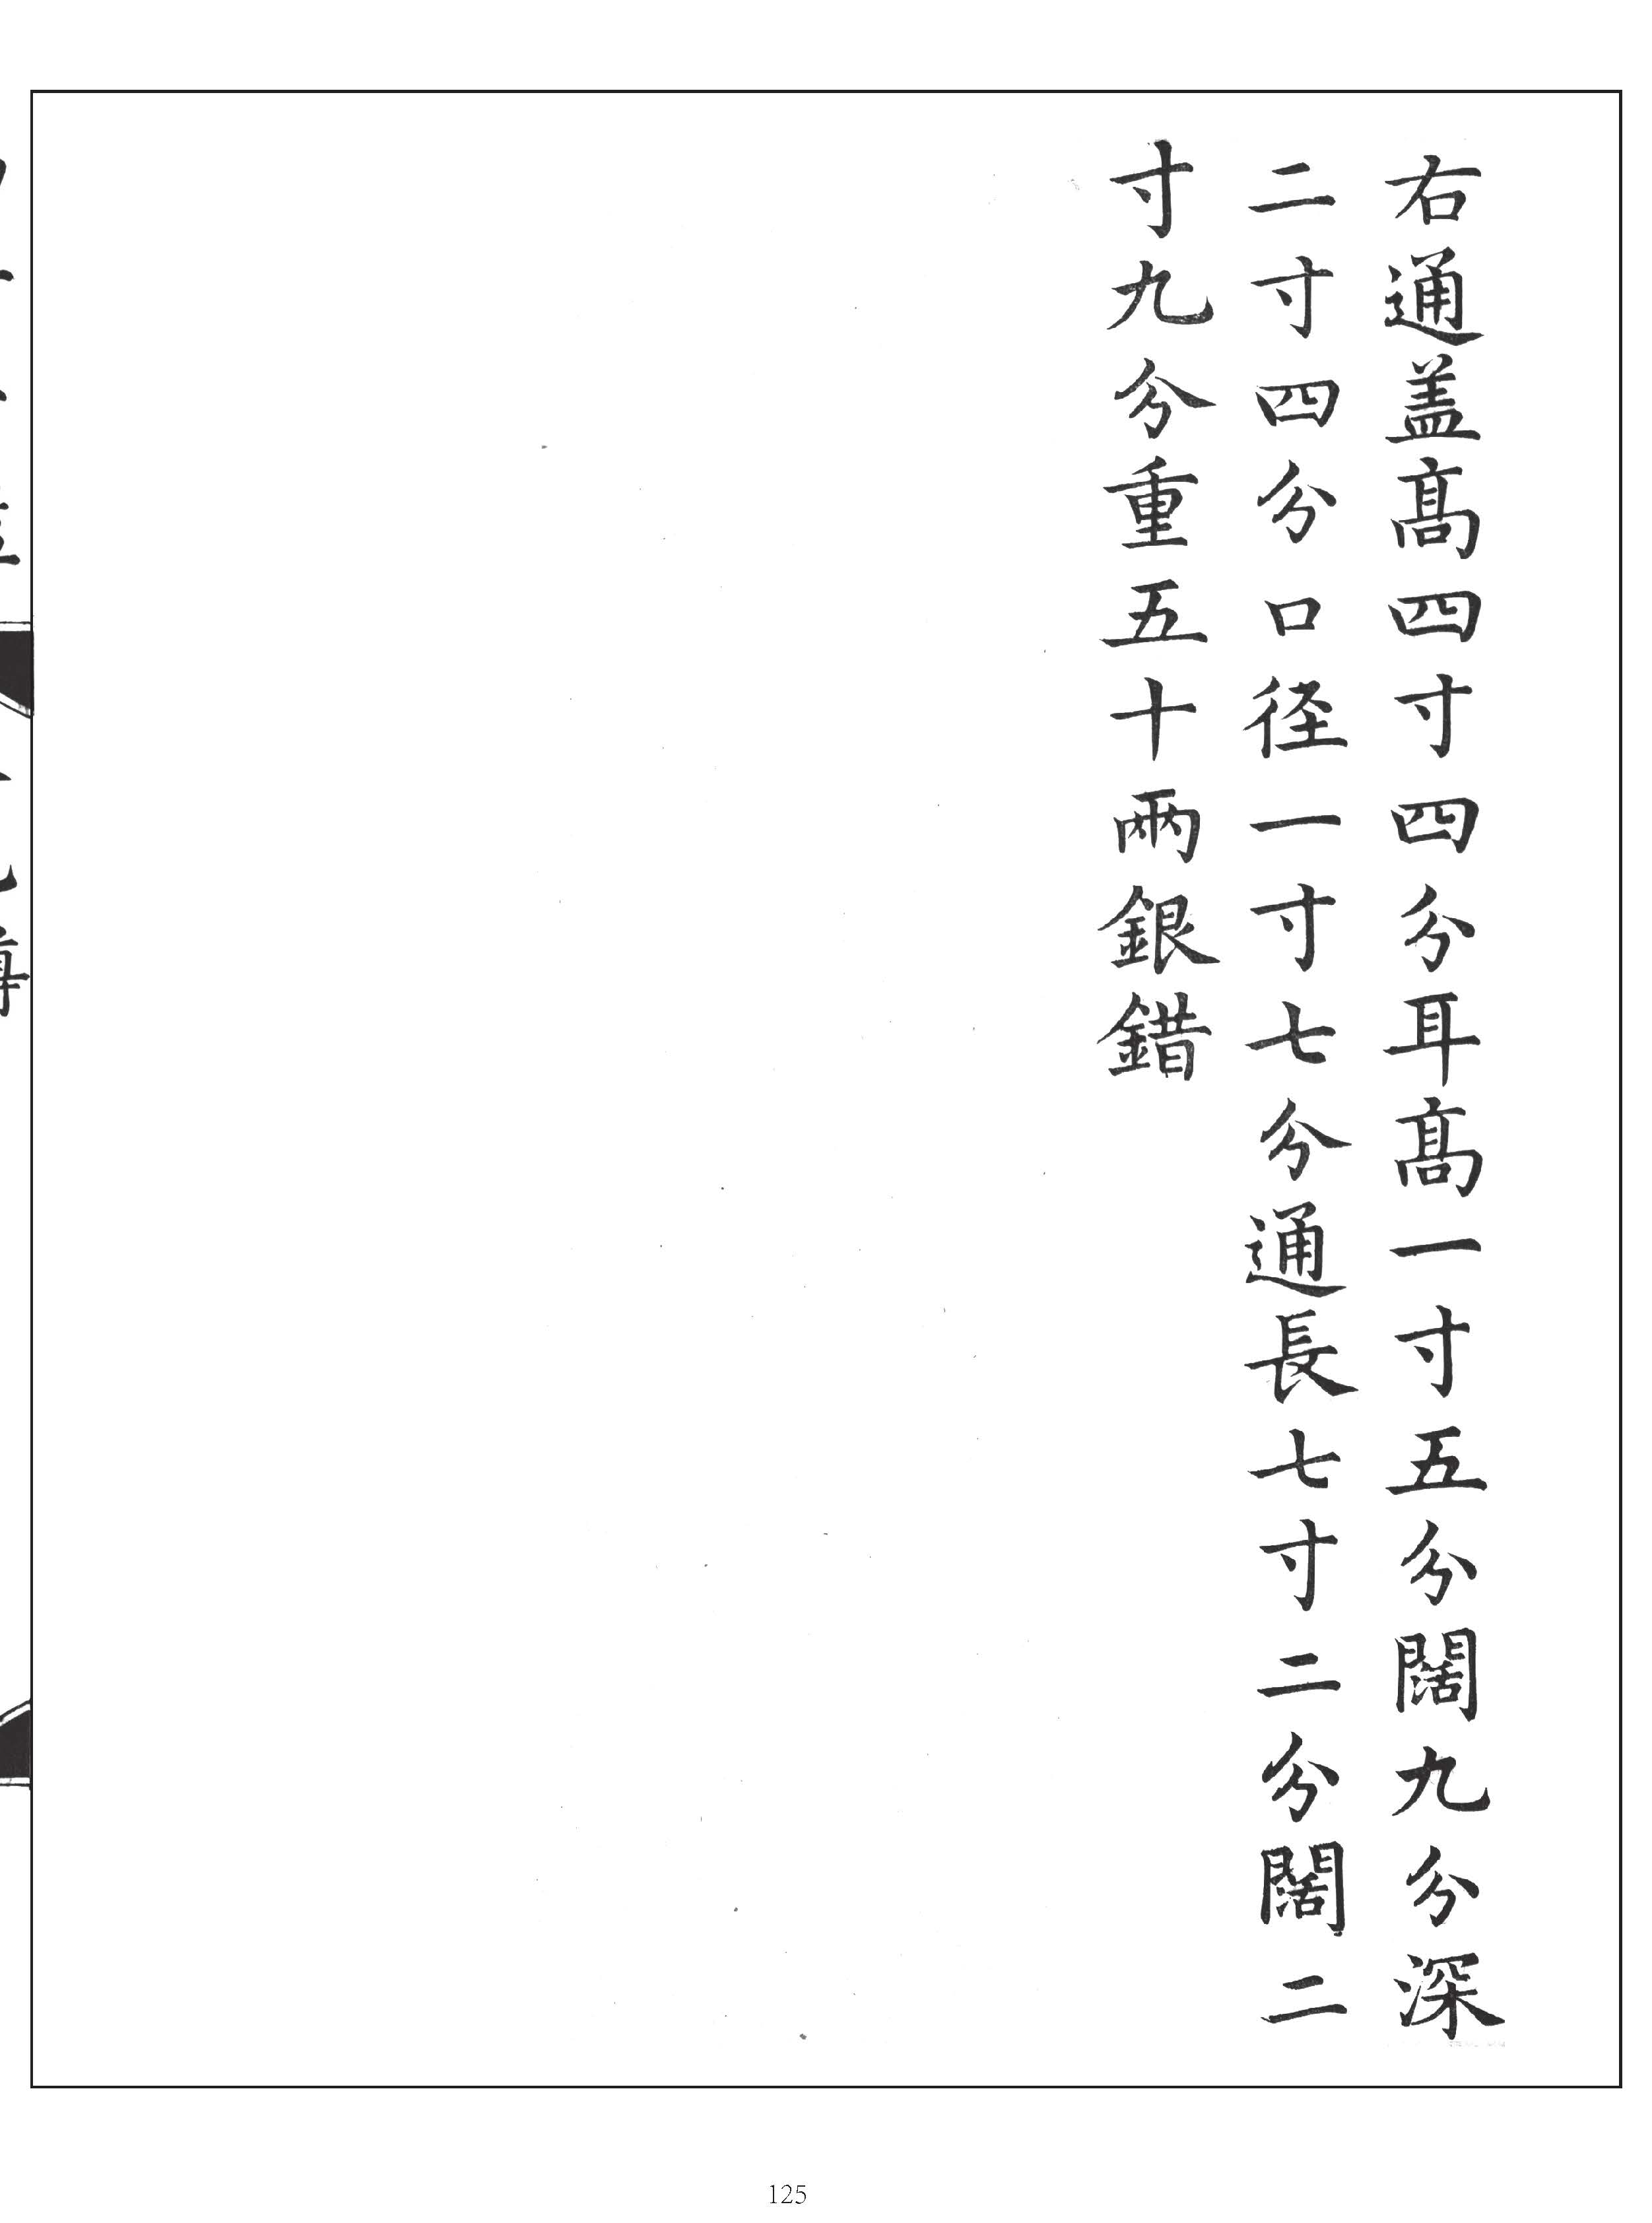 右通盖髙四寸四分耳髙一寸五分闊九分深
二寸四分口径一寸七分通長七寸二分闊二
寸九分重五十兩銀錯
125